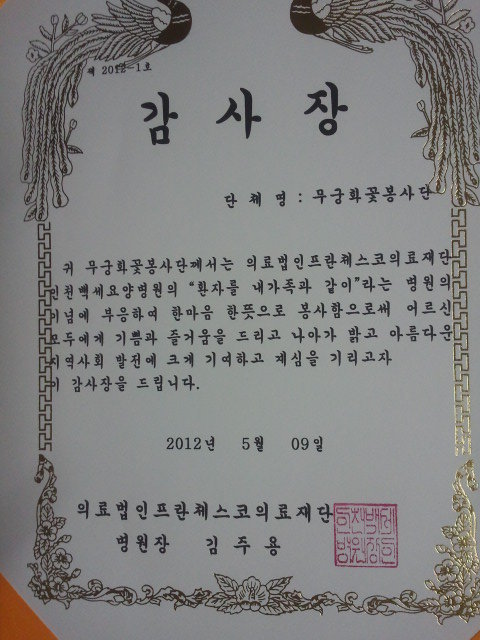 제 2012-1호
감 사 장
단 체 명 : 무궁화꽃봉사단
귀 무궁화꽃봉사단께서는 의료법인프란체스코의료재단
인천백세요양병원의 "환자를 내가족과 같이"라는 병원의
이념에 부응하여 한마음 한뜻으로 봉사함으로써 어르신
모두에게 기쁨과 즐거움을 드리고 나아가 밝고 아름다운
지역사회 발전에 크게 기여하고 계심을 기리고자
이 감사장을 드립니다.
2012년 5월 09일
의료법인프란체스코의료재단
병원장 김 주 용